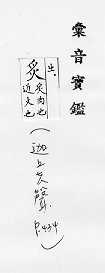 彙音寶鑑
出
炙
炙肉也
近火也
(迦上去聲 P.434)